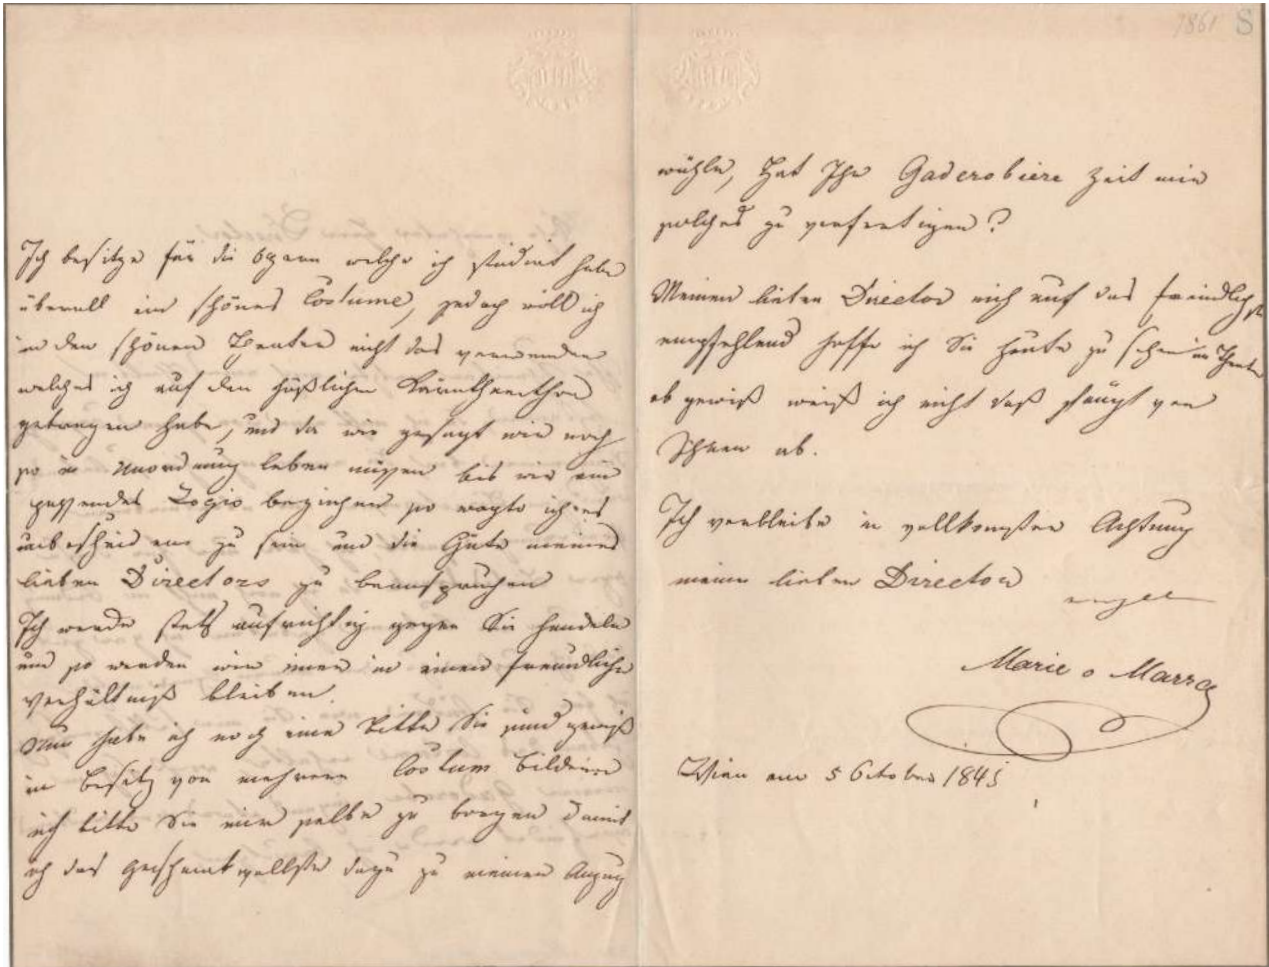 Ich besitze für die Opern welche ich studiert habe
überall ein schönes Costume, jedoch will ich
in den schönen Theater nicht das verwenden
welches ich auf den häßlichen Kärnthnerthor
getragen habe, und da wir gesagt wir noch
so in Unordnung leben müssen bis wir ein
passendes Logis beziehen so wagte ich es
unbescheiden zu sein und die Güte meines
lieben Directors zu beanspruchen
Ich werde stets aufrichtig gegen Sie handeln
und so werden wir immer in einen freundliche
Verhältniß bleiben.
Nun habe ich noch eine Bitte Sie sind gewiß
in Besitz von mehrere Costum Bildern
ich bitte Sie mir selbe zu borgen damit
ich das geschmackvollste dazu zu meinen Anzug
1861 S
wähle, hat Ihr Gaderobiere Zeit mir
solches zu verfertigen?
Meinen lieben Director mich auf das freundlichste
empfehlend hoffe ich Sie heute zu sehen im Theater
ob gewiß weiß ich nicht daß hängt von
Ihnen ab.
Ich verbleibe in vollkomster Achtung
meinen lieben Director
Marie v Marra
Wien am 5 October 1845